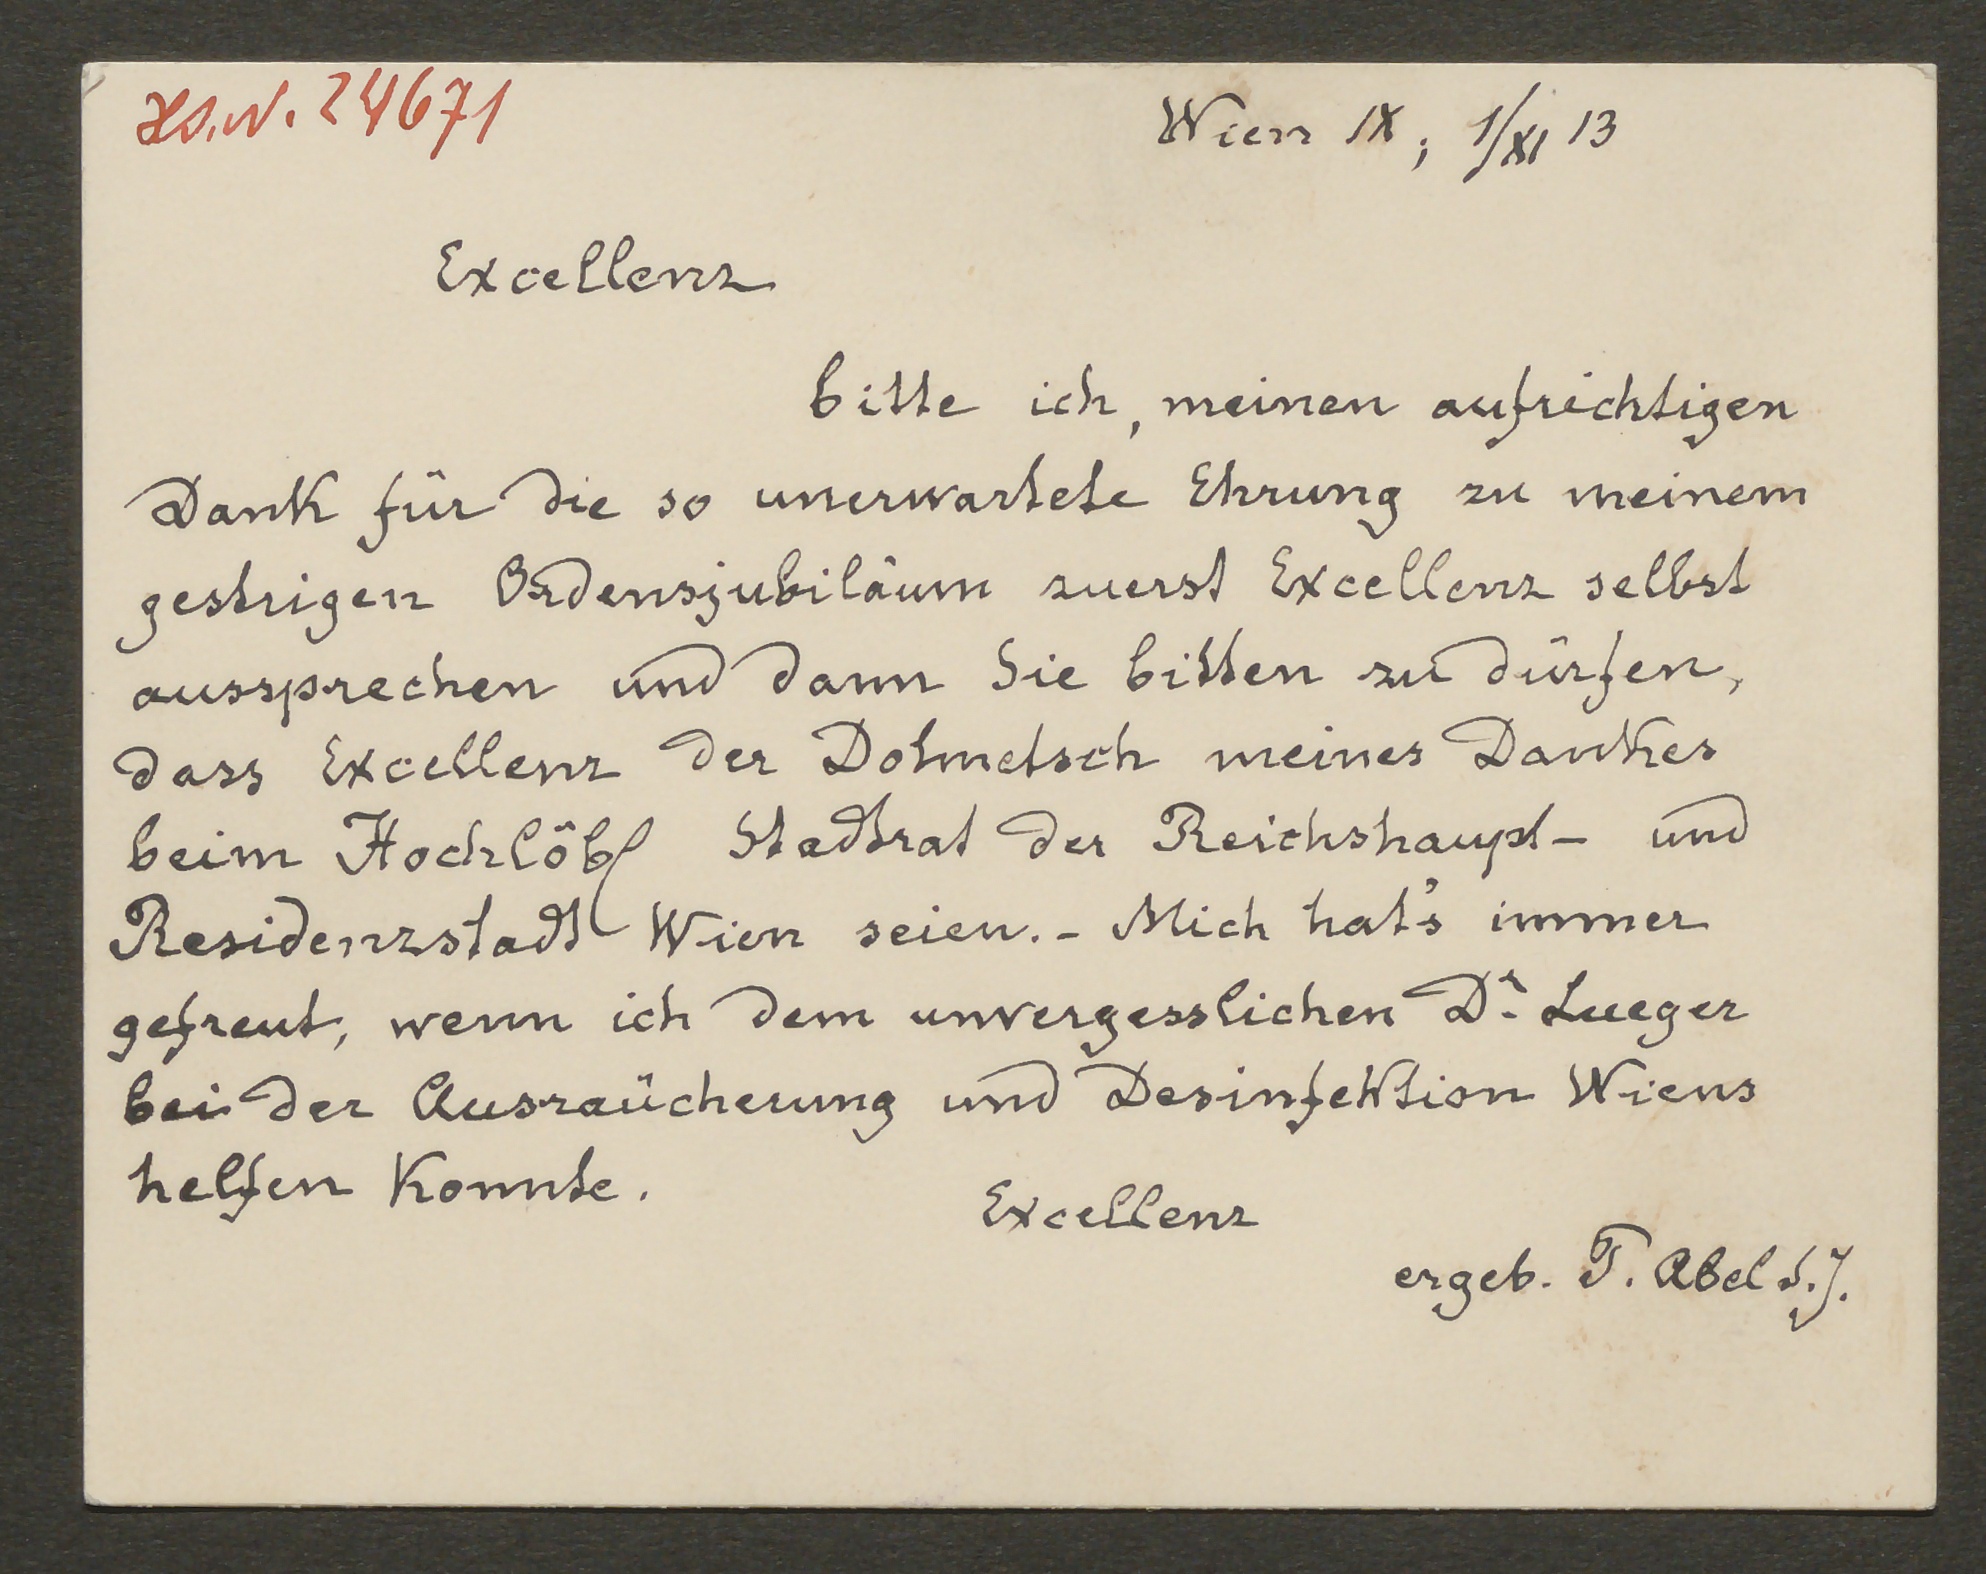 Hs.N. 24671
Wien IX, 1/XI 13
Excellenz
bitte ich, meinen aufrichtigen
Dank für die so unerwartete Ehrung zu meinem
gestrigen Ordensjubiläum zuerst Excellenz selbst
aussprechen und dann Sie bitten zu dürfen,
dass Excellenz der Dolmetsch meines Dankes
beim Hochlöbl Stadtrat der Reichshaupt- und
Residenzstadt Wien seien. - Mich hat's immer
gefreut, wenn ich dem unvergesslichen Dr. Lueger
bei der Ausraücherung und Desinfektion Wiens
helfen konnte.
Excellenz
ergeb. P. Abel S.J.